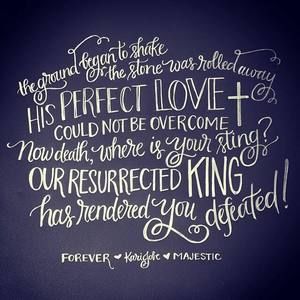 the ground began to shake
the stone was rolled away
HIS PERFECT LOVE
COULD NOT BE OVERCOME
Now death, where is your sting?
OUR RESURRECTED KING
has rendered you defeated!
FOREVER ♥ Kari Jobe ♥ MAJESTIC